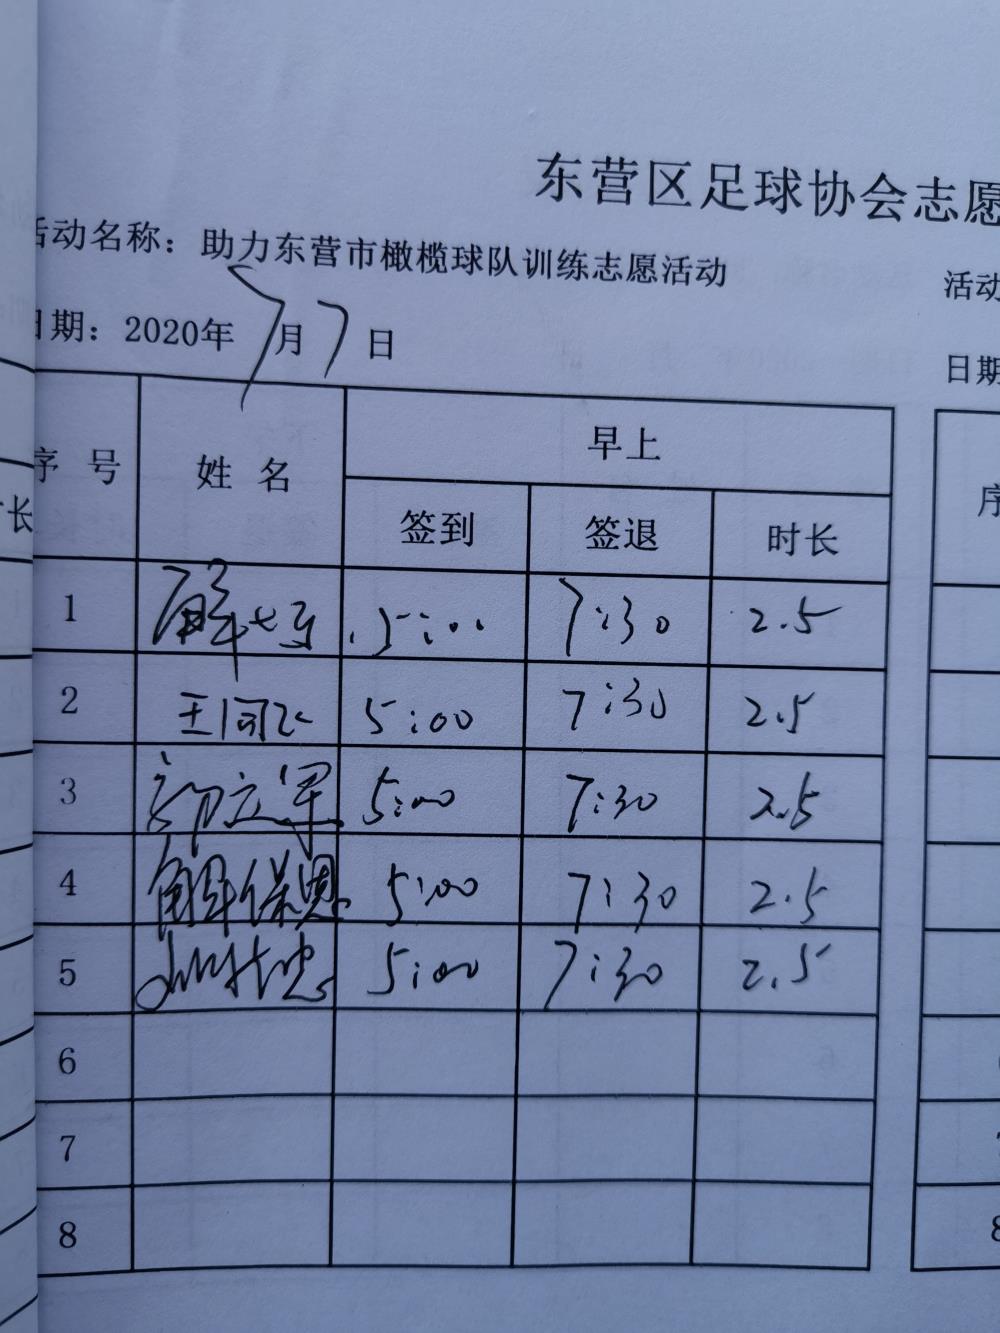 东营区足球协会志愿
活动名称：助力东营市橄榄球队训练志愿活动
活动
日期：2020年7月7日
日期
序号 姓名 早上
签到 签退 时长
长
序
1 5:00 7:30 2.5
2 王同飞 5:00 7:30 2.5
3 郭立军 5:00 7:30 2.5
4 解保恩 5:00 7:30 2.5
5 5:00 7:30 2.5
6
7
8
8